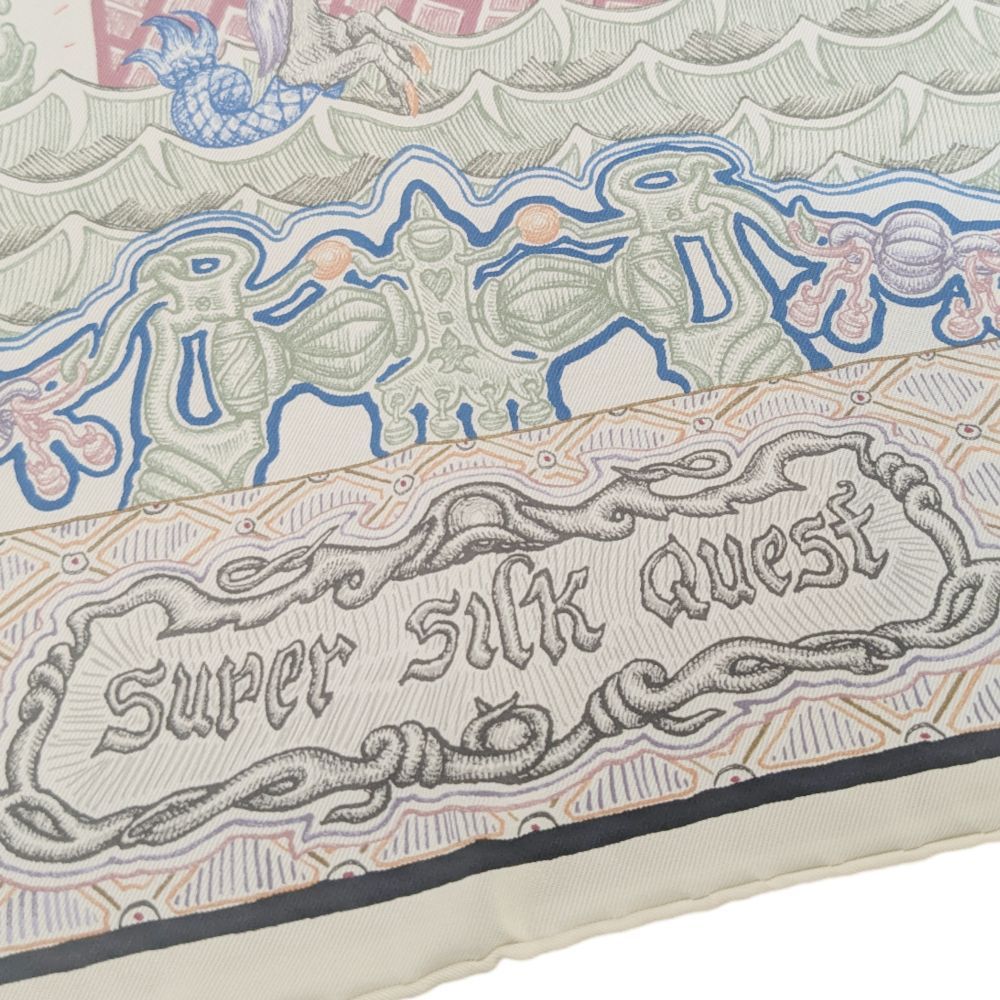 Super Silk Quest